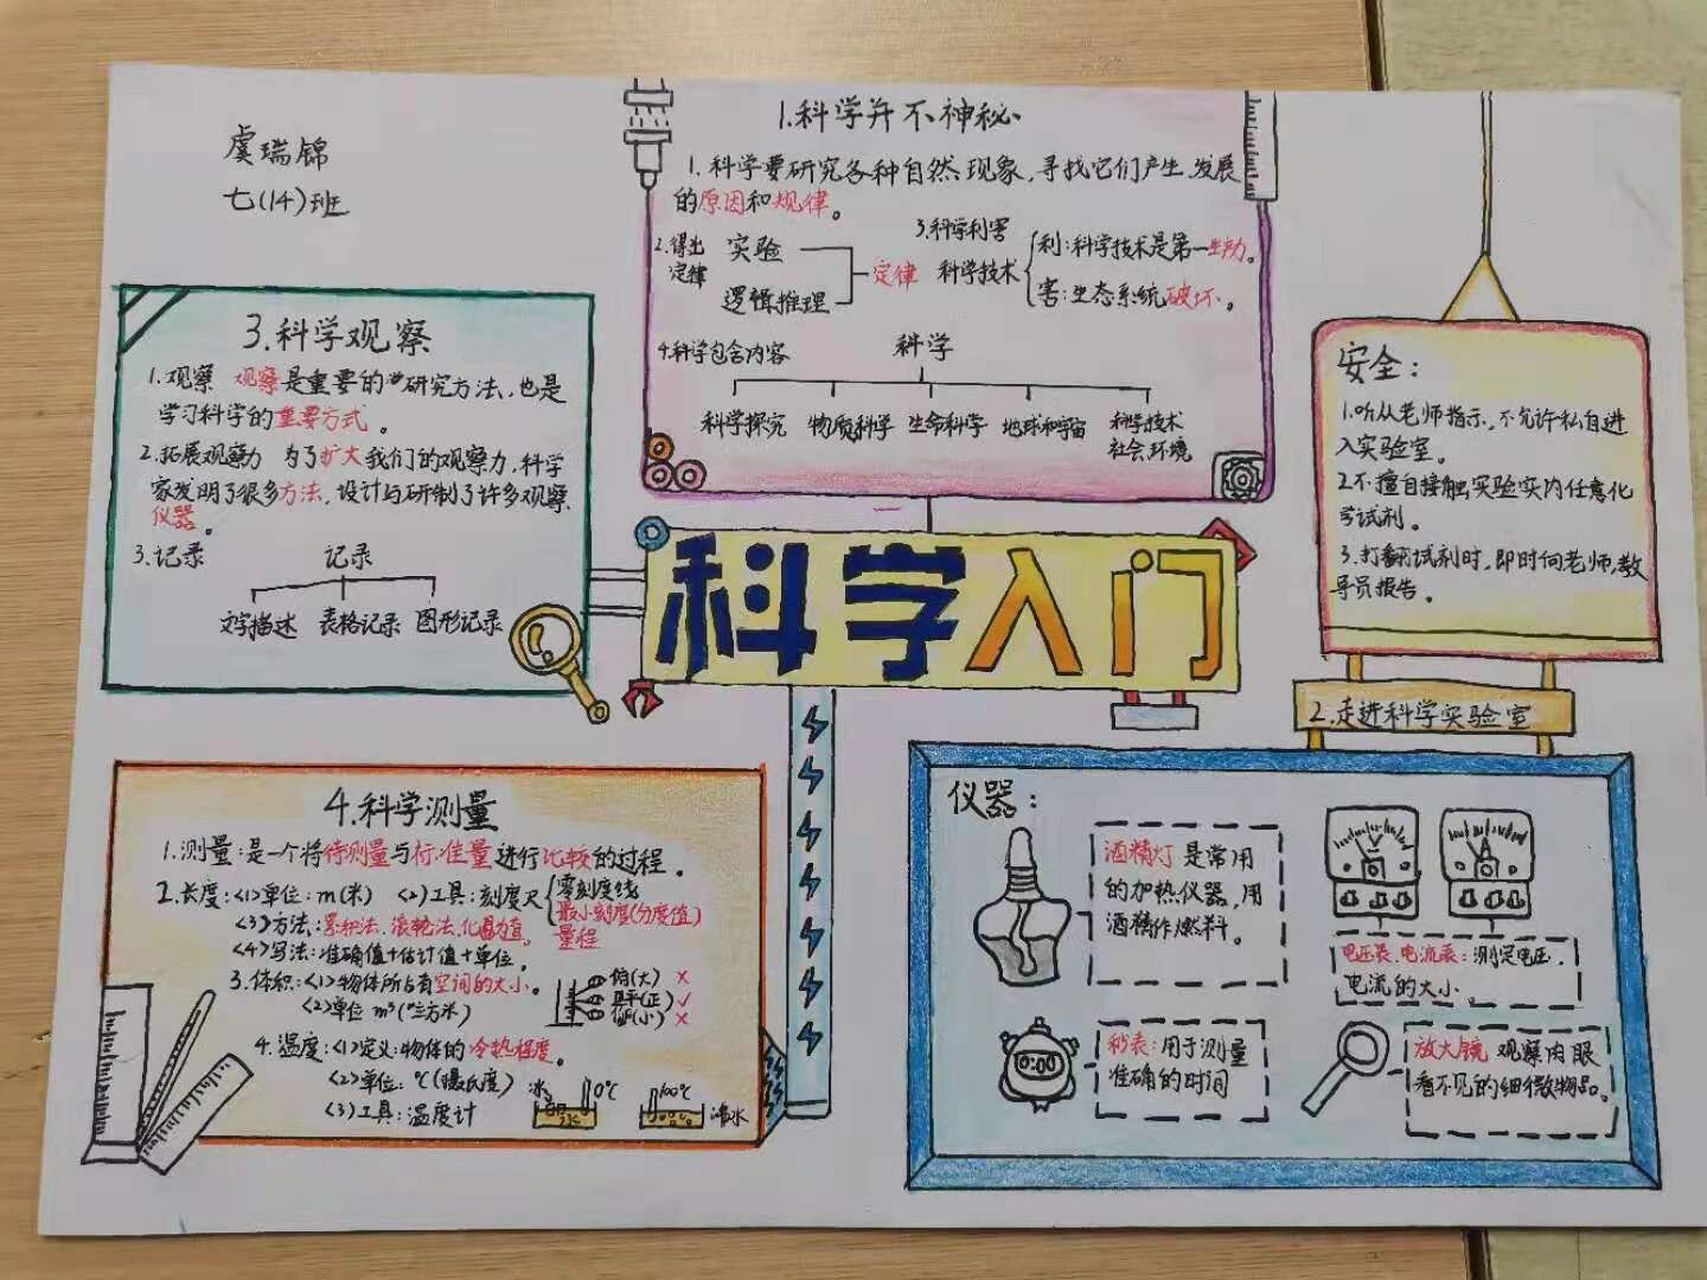 虞瑞锦
七(14)班
1.科学并不神秘
1.科学要研究各种自然现象,寻找它们产生、发展
的原因和规律。
2.得出
定律
实验
逻辑推理
定律
3.科学利害
科学技术
利:科学技术是第一生产力。
害:生态系统破坏。
4.科学包含内容
科学
科学探究 物质科学 生命科学 地球和宇宙 科学技术
社会环境
3.科学观察
1.观察 观察是重要的研究方法,也是
学习科学的重要方式。
2.拓展观察力 为了扩大我们的观察力,科学
家发明了很多方法,设计与研制了许多观察
仪器。
3.记录
记录
文字描述 表格记录 图形记录
科学入门
安全:
1.听从老师指示,不允许私自进
入实验室。
2.不擅自接触实验室内任意化
学试剂。
3.打翻试剂时,即时向老师,教
导员报告。
2.走进科学实验室
仪器:
酒精灯是常用
的加热仪器,用
酒精作燃料。
电压表、电流表:测定电压,
电流的大小
0:00
秒表:用于测量
准确的时间
放大镜 观察肉眼
看不见的细微物品。
4.科学测量
1.测量:是一个将待测量与标准量进行比较的过程。
2.长度:<1>单位:m(米) <2>工具:刻度尺
零刻度线
最小刻度(分度值)
量程
<3>方法:累积法、滚轮法、化曲为直。
<4>写法:准确值+估计值+单位。
3.体积:<1>物体所占有空间的大小。
<2>单位 m³(立方米)
俯(大) ×
平(正) ✓
仰(小) ×
4.温度:<1>定义:物体的冷热程度。
<2>单位:℃(摄氏度)
<3>工具:温度计
冰
0℃
水
100℃
沸水